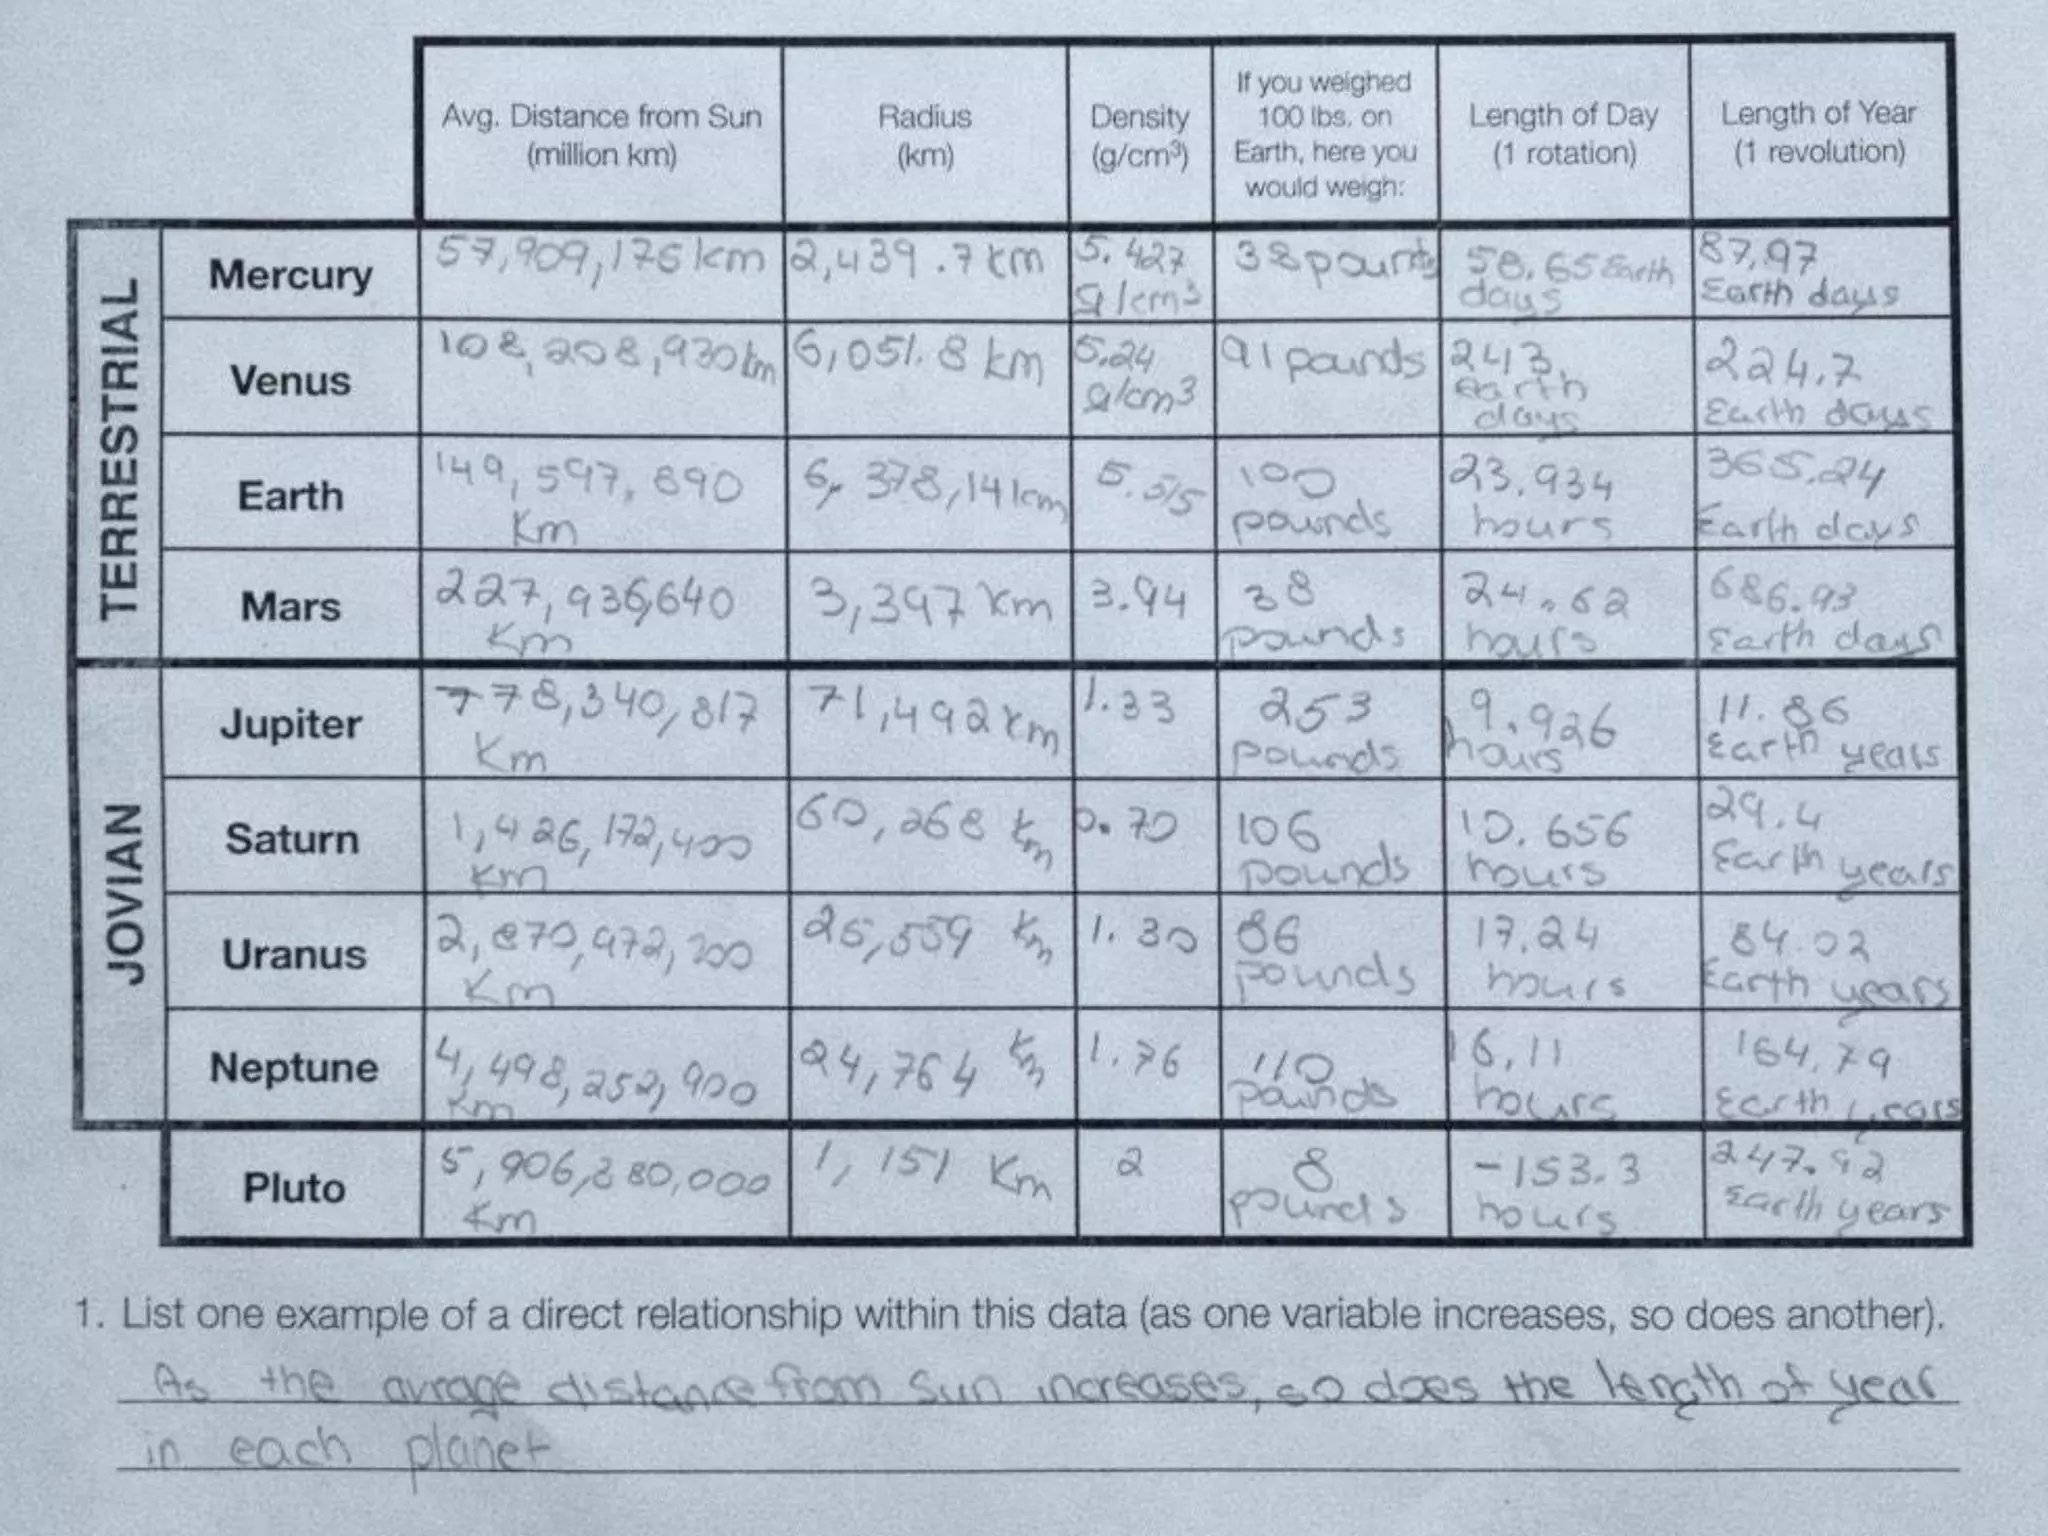 Avg. Distance from Sun (million km) Radius (km) Density (g/cm³) If you weighed 100 lbs. on Earth, here you would weigh: Length of Day (1 rotation) Length of Year (1 revolution)
TERRESTRIAL
Mercury 57,909,176 km 2,439.7 km 5.427 g/cm³ 38 pounds 58.65 Earth days 87.97 Earth days
Venus 108,208,930 km 6,051.8 km 5.24 g/cm³ 91 pounds 243 earth days 224.7 Earth days
Earth 149,597,890 Km 6,378,14 km 5.515 100 pounds 23.934 hours 365.24 Earth days
Mars 227,936,640 Km 3,397 Km 3.94 38 pounds 24.62 hours 686.93 Earth days
JOVIAN
Jupiter 778,340,817 Km 71,492 km 1.33 253 pounds 9.926 hours 11.86 Earth years
Saturn 1,426,172,400 km 60,268 km 0.70 106 pounds 10.656 hours 29.4 Earth years
Uranus 2,870,972,200 Km 25,559 Km 1.30 86 pounds 17.24 hours 84.02 Earth years
Neptune 4,498,252,900 km 24,764 Km 1.76 110 pounds 16.11 hours 164.79 Earth years
Pluto 5,906,380,000 Km 1,151 Km 2 8 pounds -153.3 hours 247.92 Earth years
1. List one example of a direct relationship within this data (as one variable increases, so does another).
As the avrage distance from Sun increases, so does the length of year
in each planet